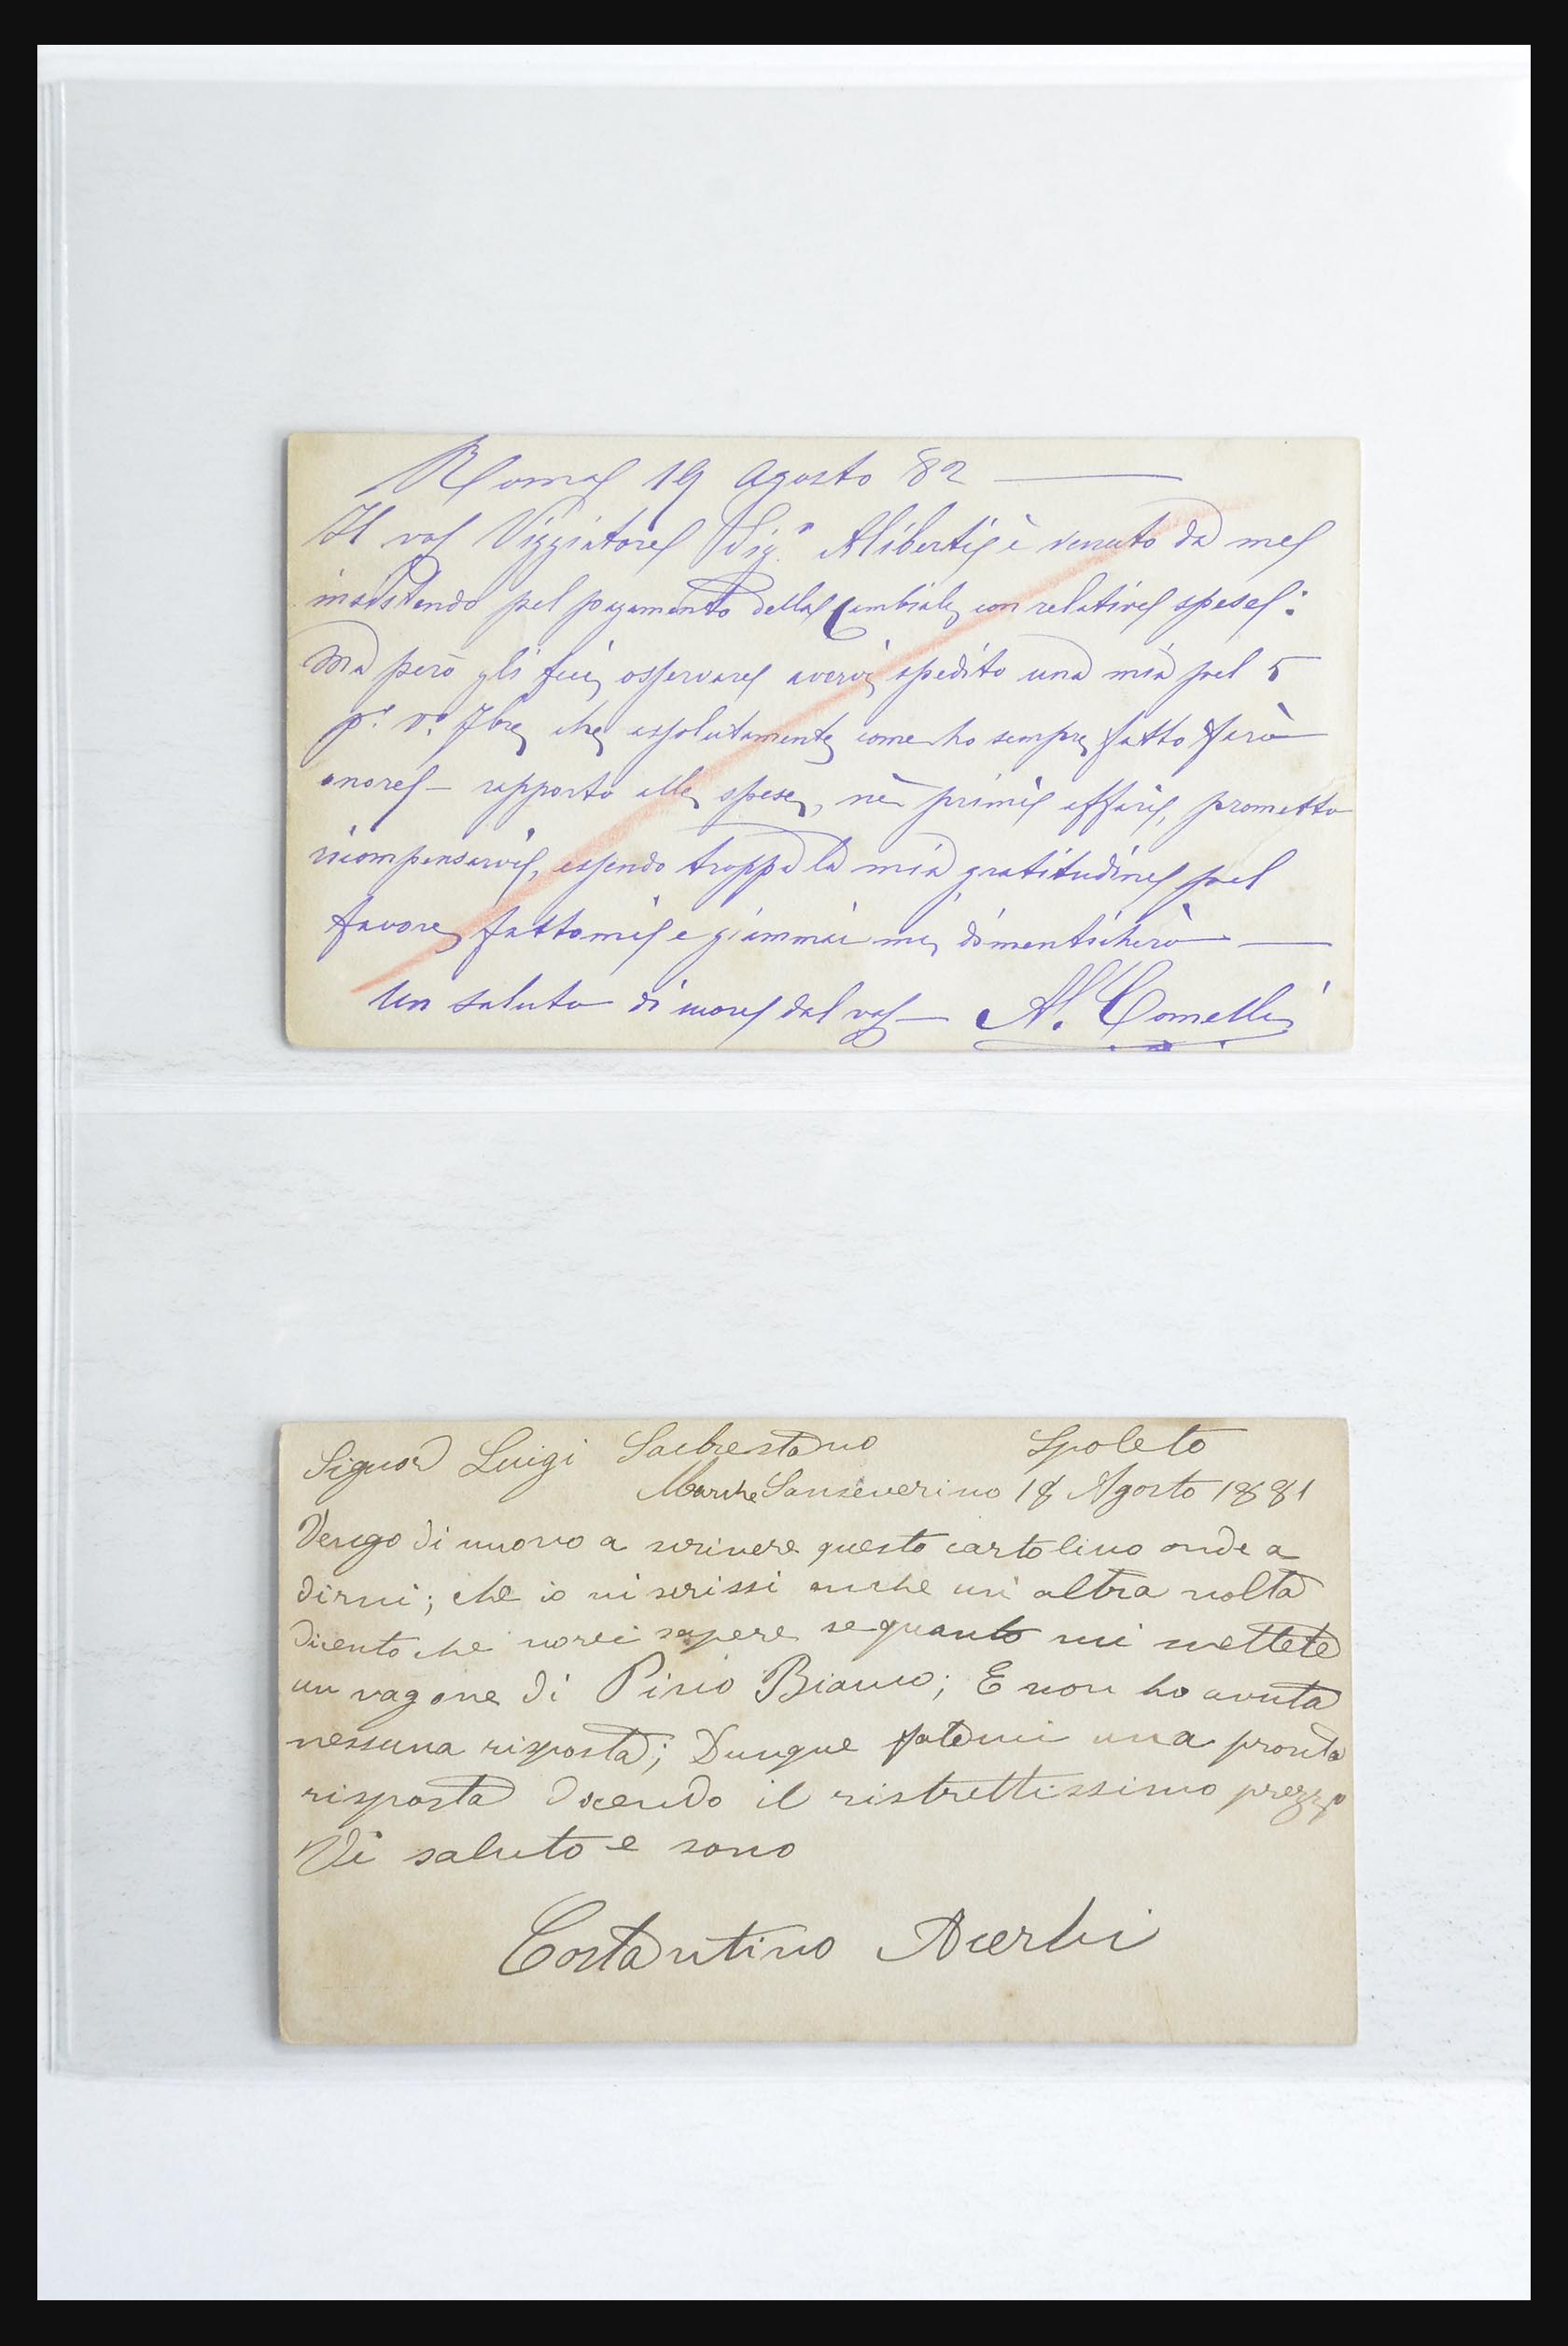 Roma 19 Agosto 82
Il vos Viggiatore Sig.r Aliberti è venuto da me
insistendo pel pagamento della Cambiale con relative spese:
Ma però gli feci osservare avervi spedito una mia pel 5
p.º v.º 7bre che assolutamente come ho sempre fatto farò
onore — rapporto alle spese, nei primi affari, prometto
ricompensarvi, essendo troppa la mia gratitudine pel
favore fattomi e giammai mi dimenticherò —
Un saluto di cuore dal vos — A. Comelli
Signor Luigi Sacrestano Spoleto
Marche Sanseverino 18 Agosto 1881
Vengo di nuovo a scrivere questo cartolino onde a
dirvi; che io vi scrissi anche un altra volta
dicento che vorei sapere se quanto mi mettete
un vagone di Pino Bianco; E non ho avuta
nessuna risposta; Dunque fatemi una pronta
risposta dicendo il ristrettissimo prezzo
Vi saluto e sono
Costantino Acerbi